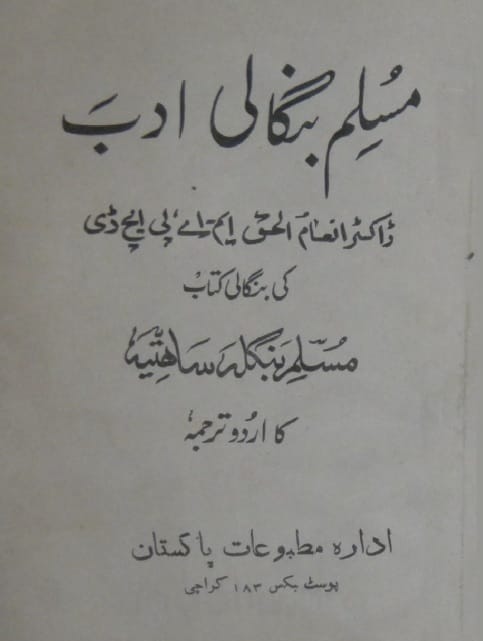 مُسلِم بنگالی ادب
ڈاکٹر انعام الحق ایم-اے، پی ایچ ڈی
کی بنگالی کتاب
مُسلِم بَنگلہ سَاہِتیہ
کا اردو ترجمہ
ادارہ مطبوعات پاکستان
پوسٹ بکس ۱۸۳ کراچی